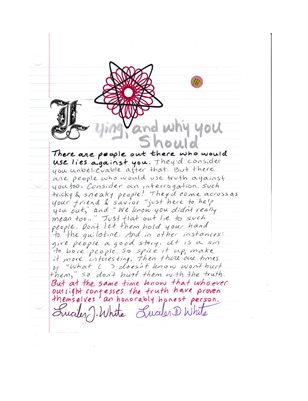 Lying, and why you
Should
There are people out there who would
use lies against you. They'd consider
you unbelievable after that. But there
are people who would use truth against
you too. Consider an interrogation, such
tricky & sneaky people! They'd come across as
your friend & savior "just here to help
you out, and "We know you didn't really
mean too.." Just flat out lie to such
people. Don't let them hold your hand
to the guilotine. And in other instances:
give people a good story. It is a sin
to bore people so spice it up, make
it more interesting. Then there are times
of "What (..) doesn't know won't hurt
them," so don't hurt them with the truth.
But at the same time know that whoever
outright confesses the truth have proven
themselves an honorably honest person.
Lucifer J. White Lucifer D. White